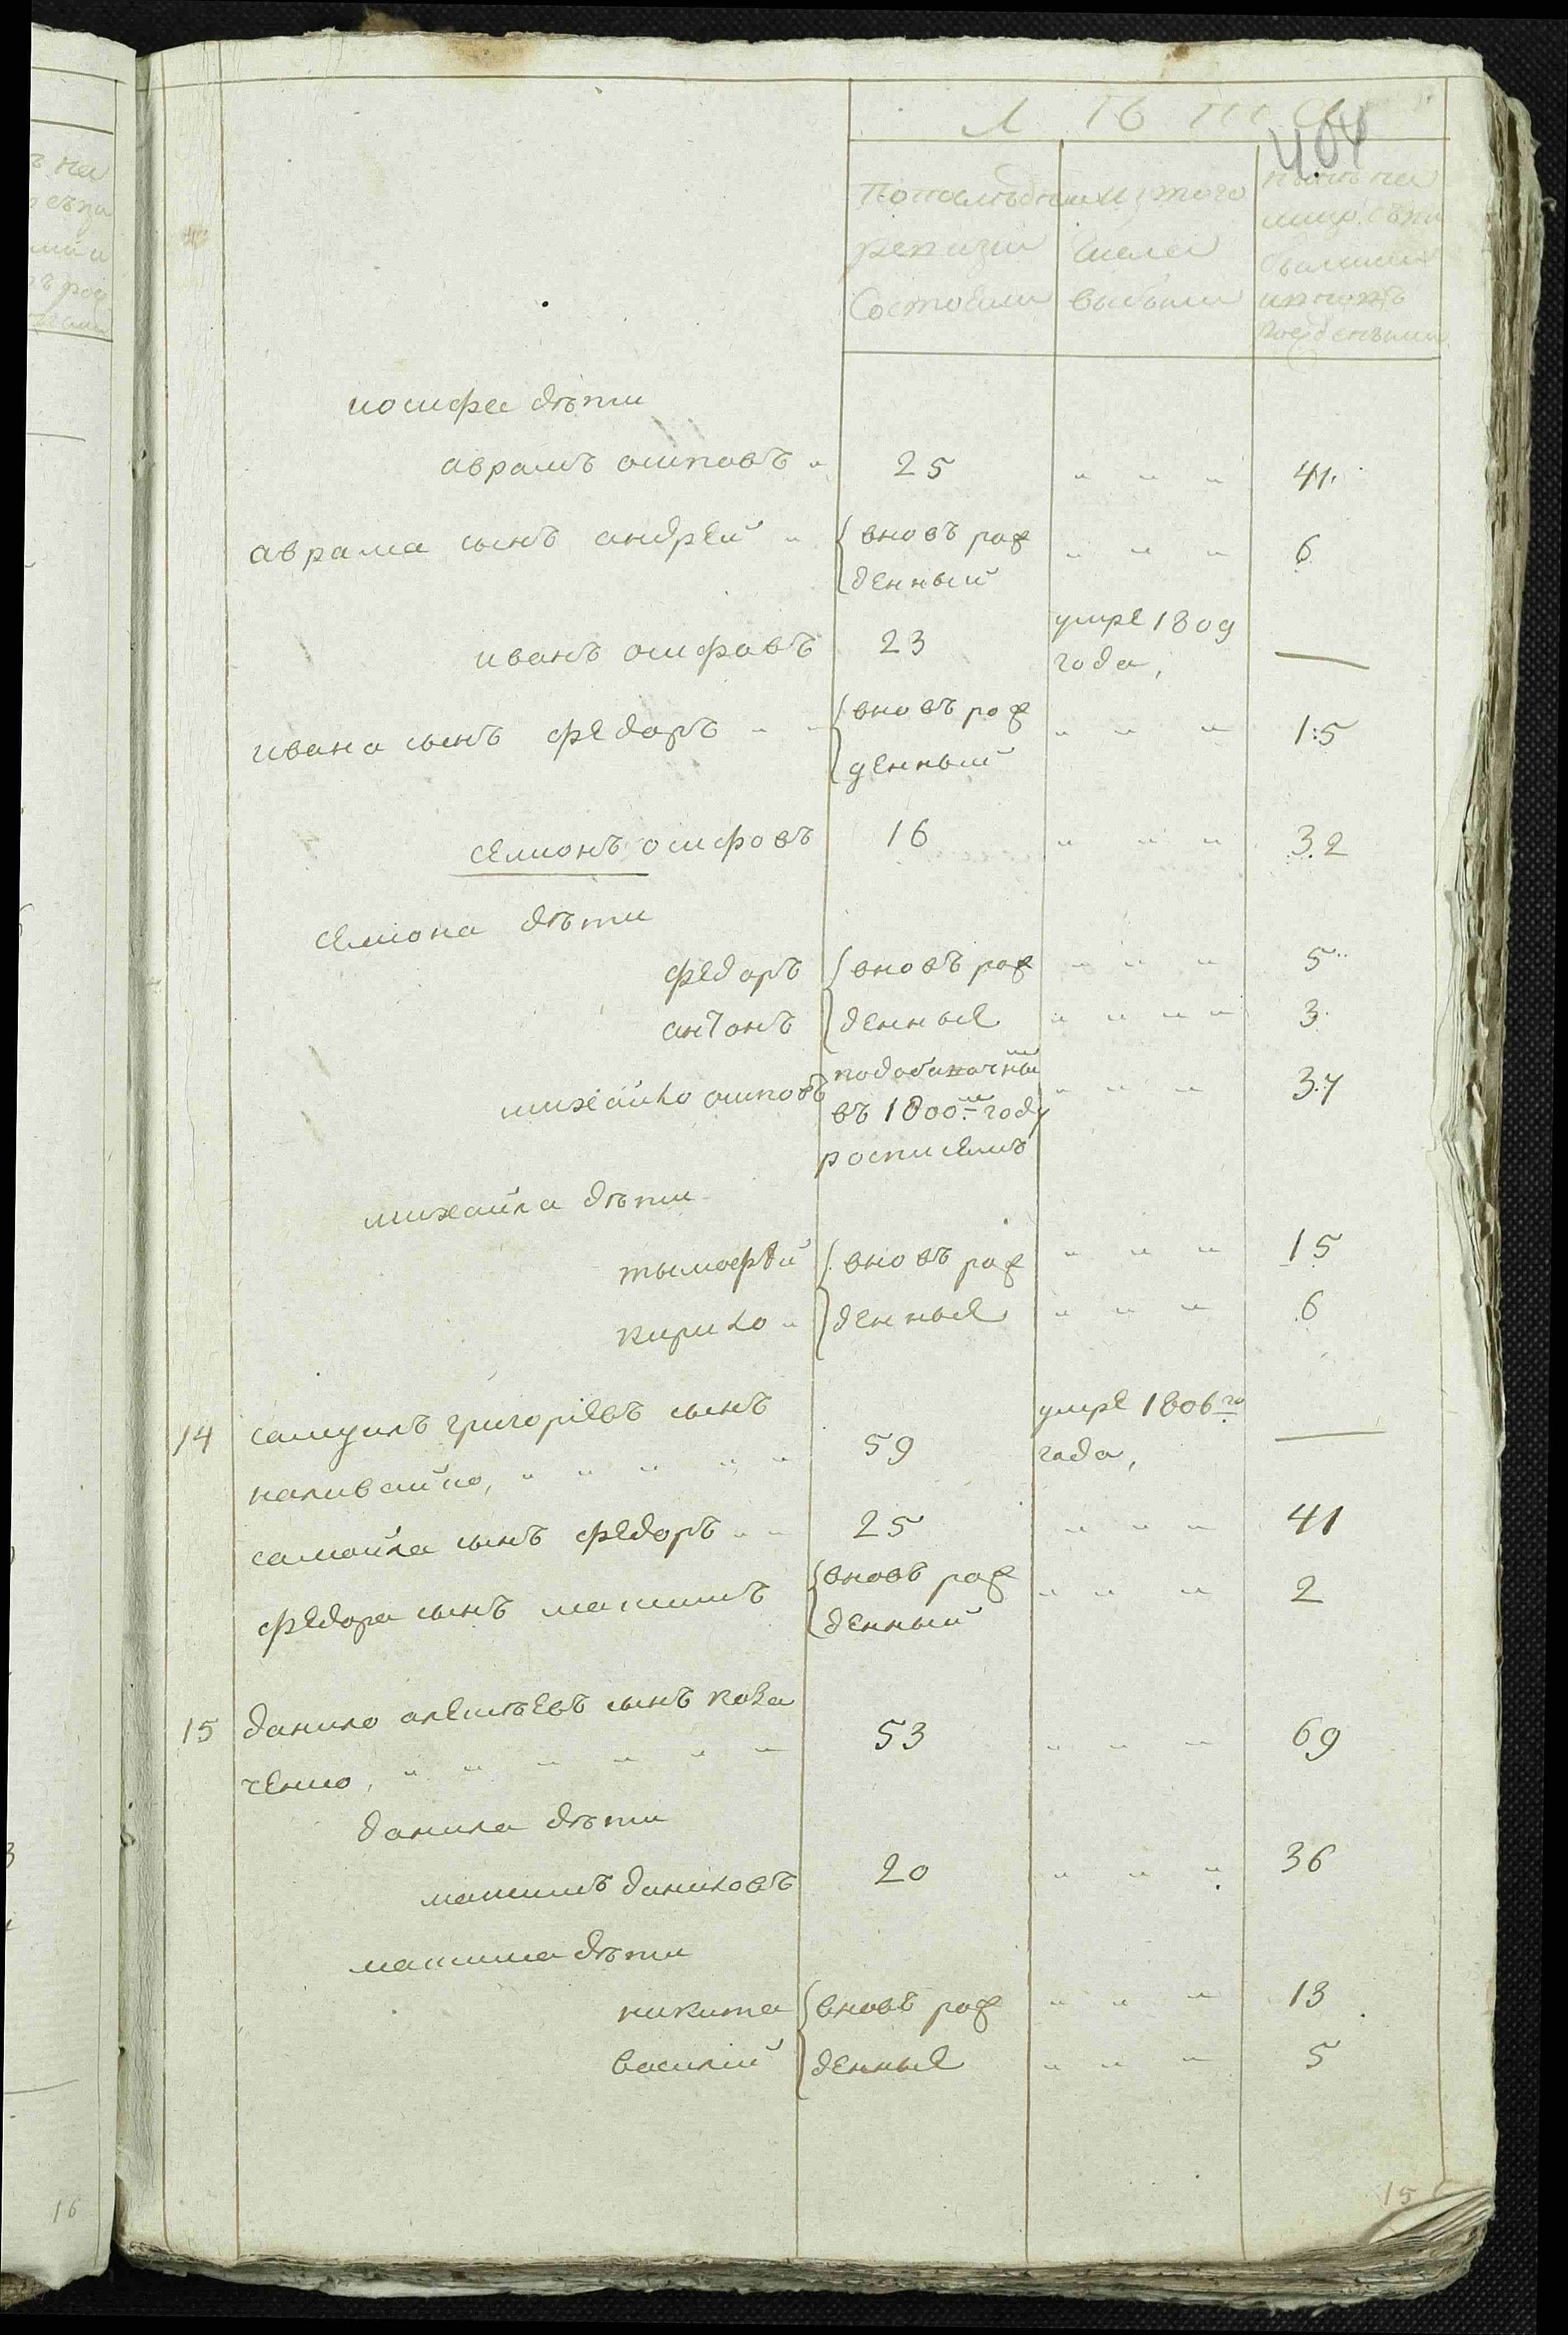 Л Ѣ Т А
404
Попослѣдней
ревизии
Состояли
изтого
числа
выбыли
Иосифа дѣти
аврамъ осиповъ 25 41
аврама сынъ андрей вновь рож
денный 6
иванъ осифовъ 23 умре 1809
года, —
ивана сынъ федоръ вновь рож
денный 15
семионъ осифовъ 16 32
семиона дѣти
федоръ вновь рож 5
антонъ денные 3
михайло осиповъ
въ 1800 году 37
росписямъ
михайла дѣти
тымофѣй вновь рож 15
кирило денные 6
14 самуилъ григориевъ сынъ умре 1806го
наливайко, 59 года, —
самойла сынъ федоръ 25 41
федора сынъ максимъ вновь рож 2
денный
15 данило алексѣевъ сынъ коза
ченко, 53 69
данила дѣти
максимъ даниловъ 20 36
максима дѣти
никита вновь рож 13
василий денные 5
15
16